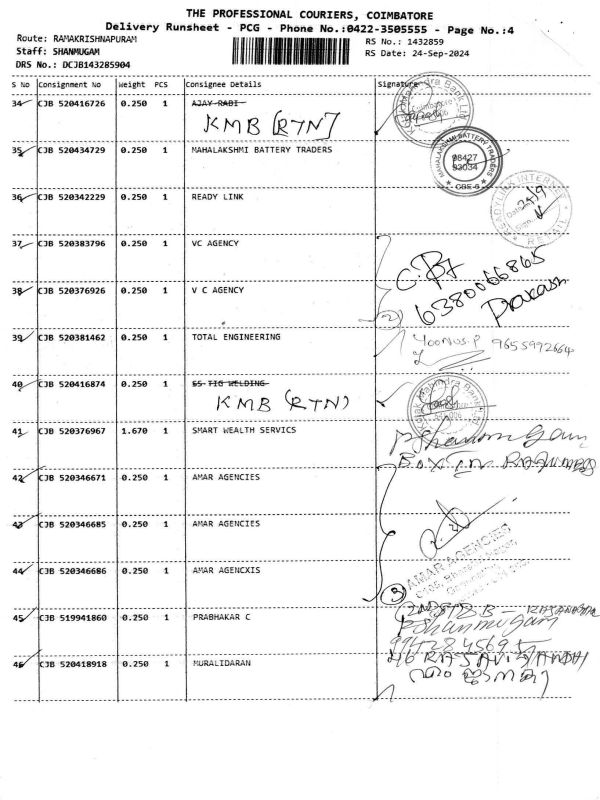 THE PROFESSIONAL COURIERS, COIMBATORE
Delivery Runsheet - PCG - Phone No.:0422-3505555 - Page No.:4
Route: RAMAKRISHNAPURAM RS No.: 1432859
Staff: SHANMUGAM RS Date: 24-Sep-2024
DRS No.: DCJB143285904
S No Consignment No Weight PCS Consignee Details Signature
34 CJB 520416726 0.250 1 AJAY RABI
KMB (RTN)
35 CJB 520434729 0.250 1 MAHALAKSHMI BATTERY TRADERS
MAHALAKSHMI BATTERY TRADERS
98427
93034
CBE-6
36 CJB 520342229 0.250 1 READY LINK
READYLINK INTERNET
24/9
37 CJB 520383796 0.250 1 VC AGENCY
6380066865
Prakash
38 CJB 520376926 0.250 1 V C AGENCY
2
39 CJB 520381462 0.250 1 TOTAL ENGINEERING
9655992664
40 CJB 520416874 0.250 1 SS TIG WELDING
KMB (RTN)
Kotak Mahindra Bank Ltd
41 CJB 520376967 1.670 1 SMART WEALTH SERVICS
Shanmugam
42 CJB 520346671 0.250 1 AMAR AGENCIES
43 CJB 520346685 0.250 1 AMAR AGENCIES
AMAR AGENCIES
44 CJB 520346686 0.250 1 AMAR AGENCXIS
3
45 CJB 519941860 0.250 1 PRABHAKAR C
Shanmugam
9942845695
46 CJB 520418918 0.250 1 MURALIDARAN